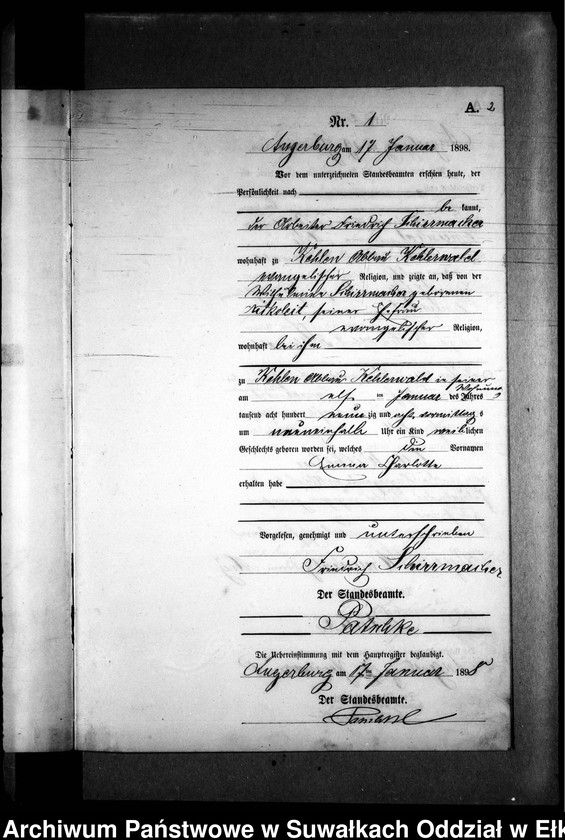 A. 2
Nr. 1
Angerburg am 17 Januar 1898.
Vor dem unterzeichneten Standesbeamten erschien heute, der
Persönlichkeit nach
be kannt,
der Arbeiter Friedrich Schirrmacher
wohnhaft zu Kehlen Abbau Kehlerwald
evangelischer Religion, und zeigte an, daß von der
Schirrmacher geborenen
seiner Ehefrau
evangelischer Religion,
wohnhaft bei ihm
zu Kehlen Abbau Kehlerwald in seiner
Wohnung
am elf ten Januar des Jahres
tausend acht hundert neun zig und acht Vormittag s
um neuneinhalb Uhr ein Kind weib lichen
Geschlechts geboren worden sei, welches den Vornamen
Emma Charlotte
erhalten habe
Vorgelesen, genehmigt und unterschrieben
Friedrich Schirrmacher
Der Standesbeamte.
Die Uebereinstimmung mit dem Hauptregister beglaubigt.
Angerburg am 17ten Januar 1898
Der Standesbeamte.
Archiwum Państwowe w Suwałkach Oddział w Ełk